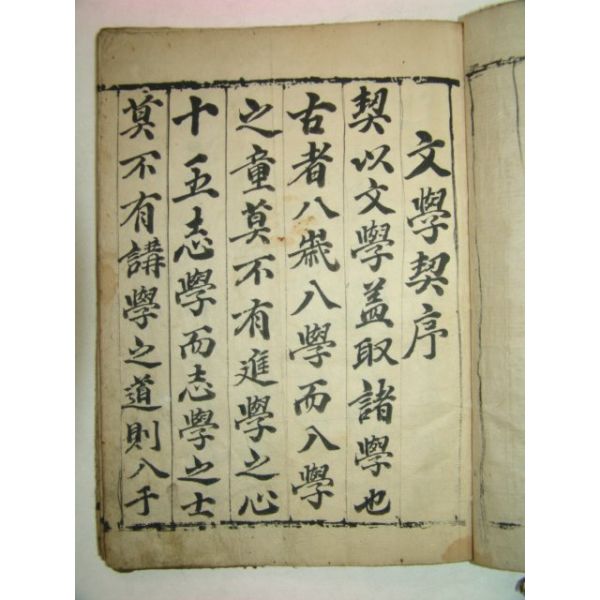 文學契序
契以文學盖取諸學也
古者八歲入學而入學
之童莫不有進學之心
十五志學而志學之士
莫不有講學之道則入于